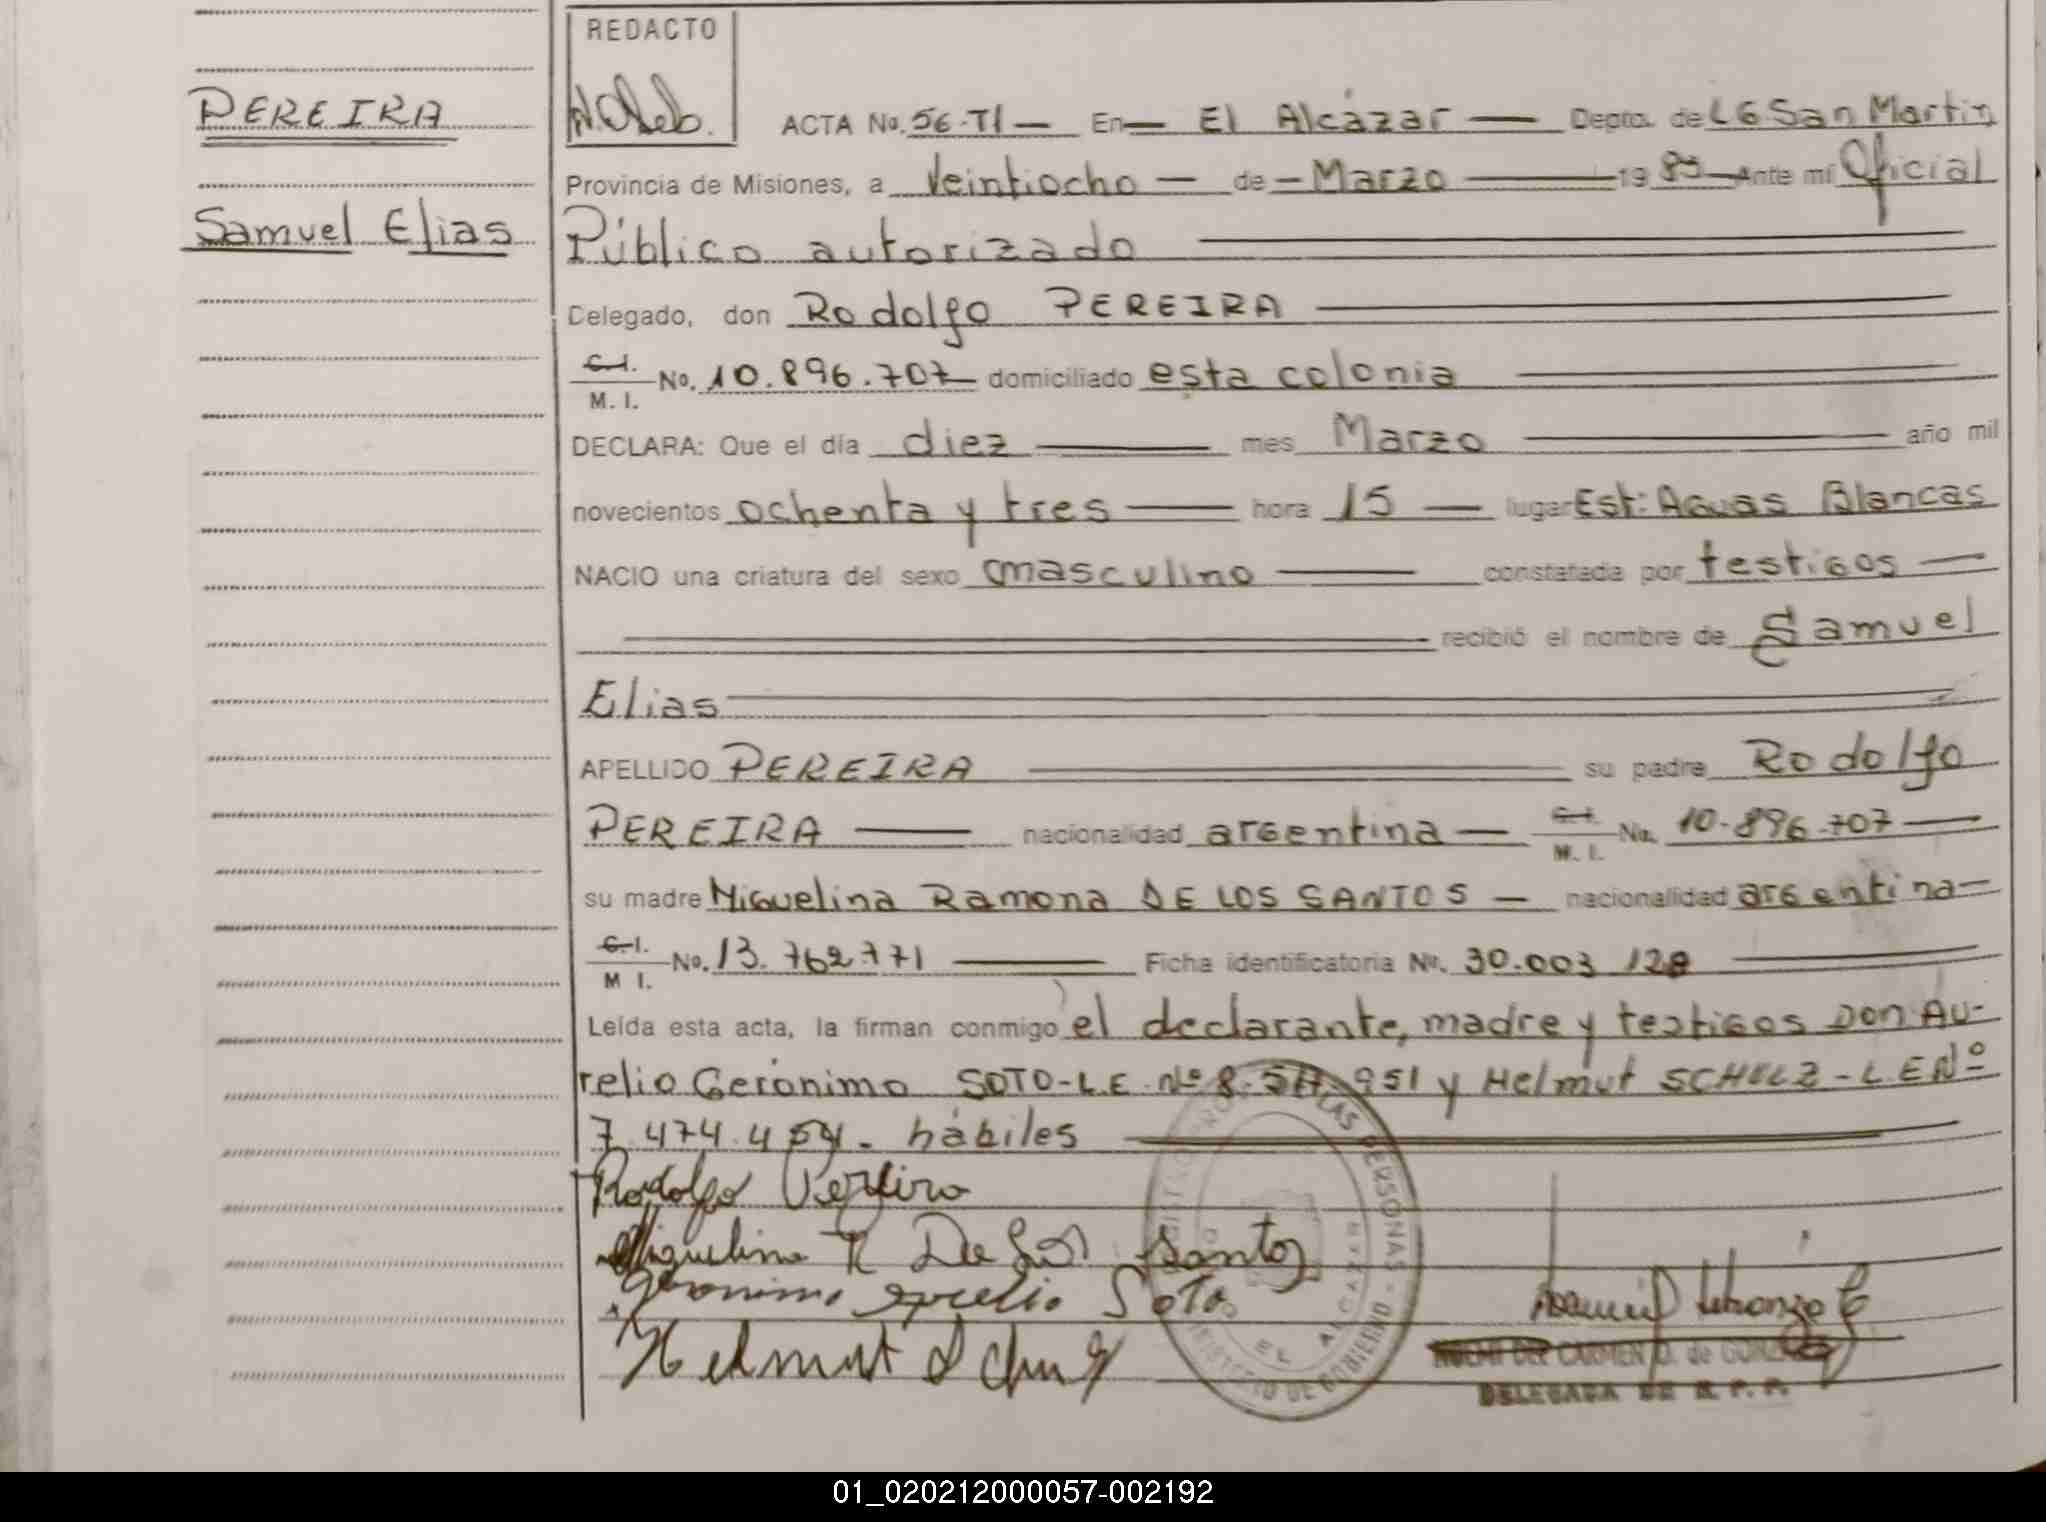 REDACTO
PEREIRA
ACTA No. 56-T1 — En — El Alcázar — Depto. de L G San Martin
Provincia de Misiones, a veintiocho — de — Marzo — 19 83 Ante mí Oficial
Samuel Elias
Público autorizado
Delegado, don Rodolfo PEREIRA
C.I.
M. I. No. 10.896.707 domiciliado esta colonia
DECLARA: Que el día diez — mes Marzo — año mil
novecientos ochenta y tres — hora 15 — lugar Est: Aguas Blancas
NACIO una criatura del sexo masculino — constatada por testigos —
recibió el nombre de Samuel
Elias
APELLIDO PEREIRA — su padre Rodolfo
PEREIRA — nacionalidad argentina — C.I. M. I. No. 10.896.707 —
su madre Miguelina Ramona DE LOS SANTOS — nacionalidad argentina —
C.I.
M I. No. 13.762.771 — Ficha identificatoria No. 30.003 128 —
Leída esta acta, la firman conmigo el declarante, madre y testigos Don Au-
relio Gerónimo SOTO - L.E. Nº 8. 951 y Helmut SCHULZ - L.E Nº
7.474.454. hábiles
Rodolfo Pereira
Miguelina R De Los Santos
Geronimo Aurelio Soto
Helmut Schulz
LAS PERSONAS - MINISTERIO DE GOBIERNO
EL ALCAZAR
CARMEN D. de
DELEGADA DE R. P. P.
01_020212000057-002192